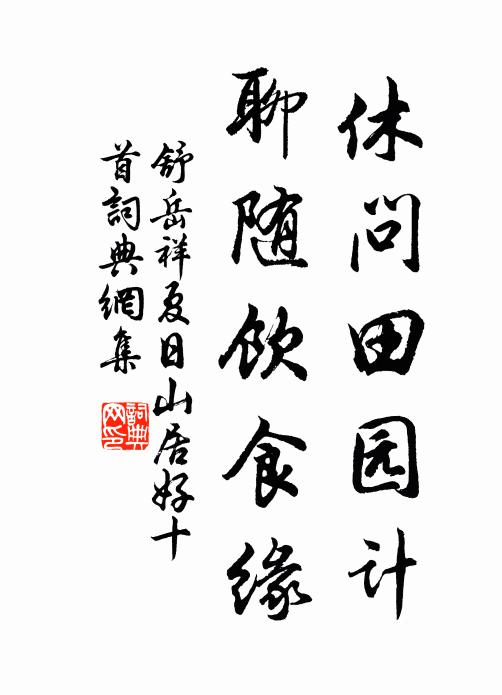 休问田园计
聊随饮食缘
舒岳祥夏日山居好十
首词典網集
詞典网印